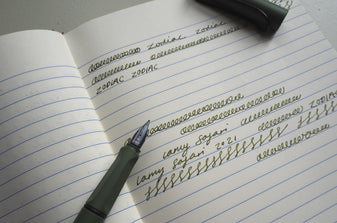 Zodiac Zodiac
ZODIAC ZODIAC
Lamy Safari
Lamy Safari 2021